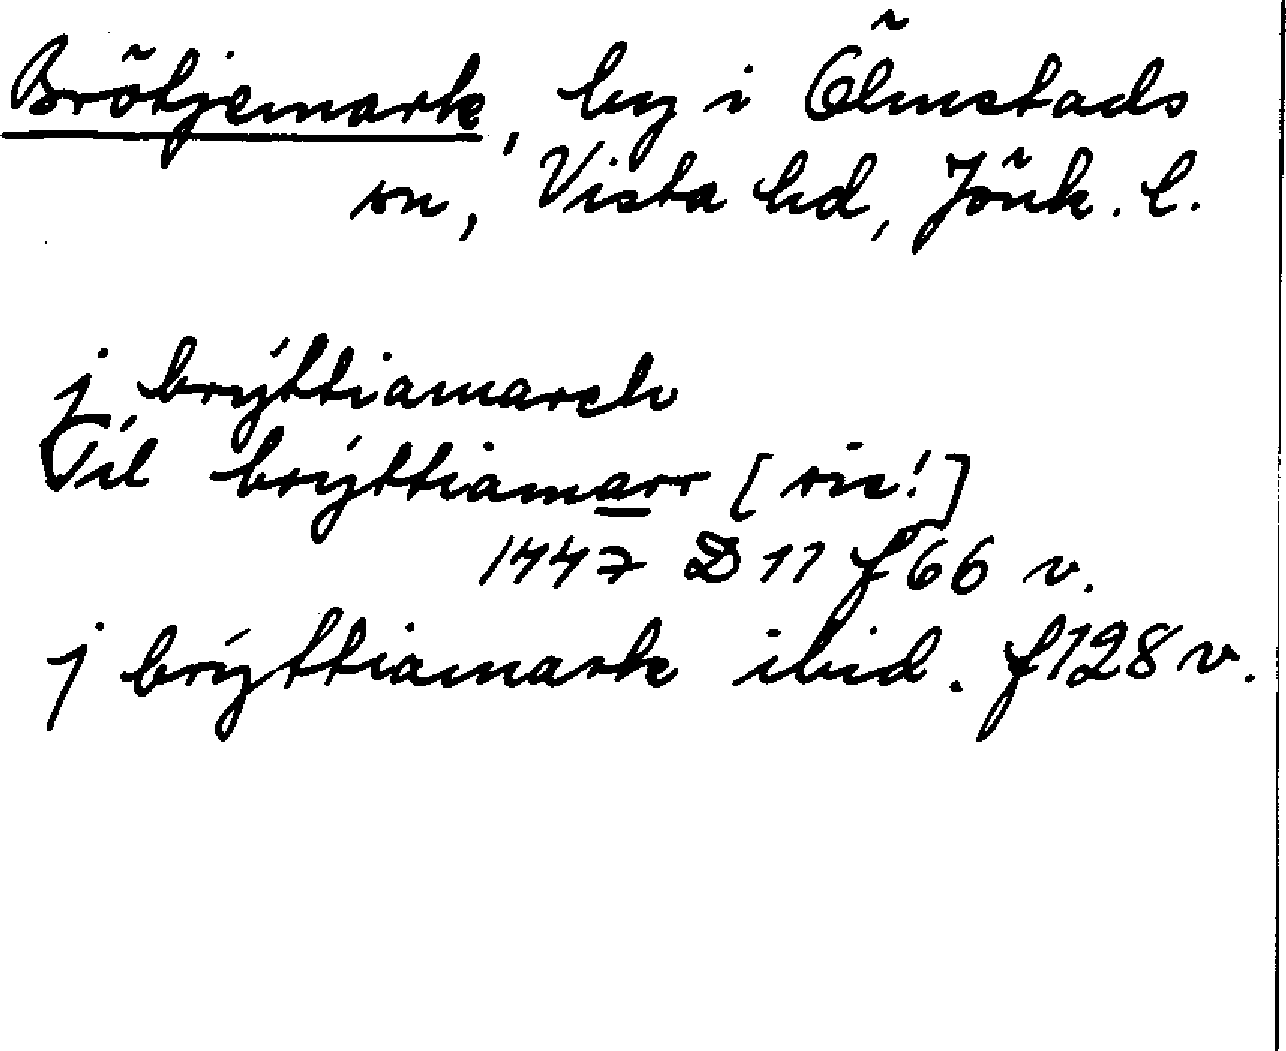 Brötjemark, by i Ölmstads
sn, Vista hd, Jönk. l.
j brýttiamarch
Til brýttiamarr [sic!]
1447 D 11 f 66 v.
j brýttiamark ibid. f 128 v.